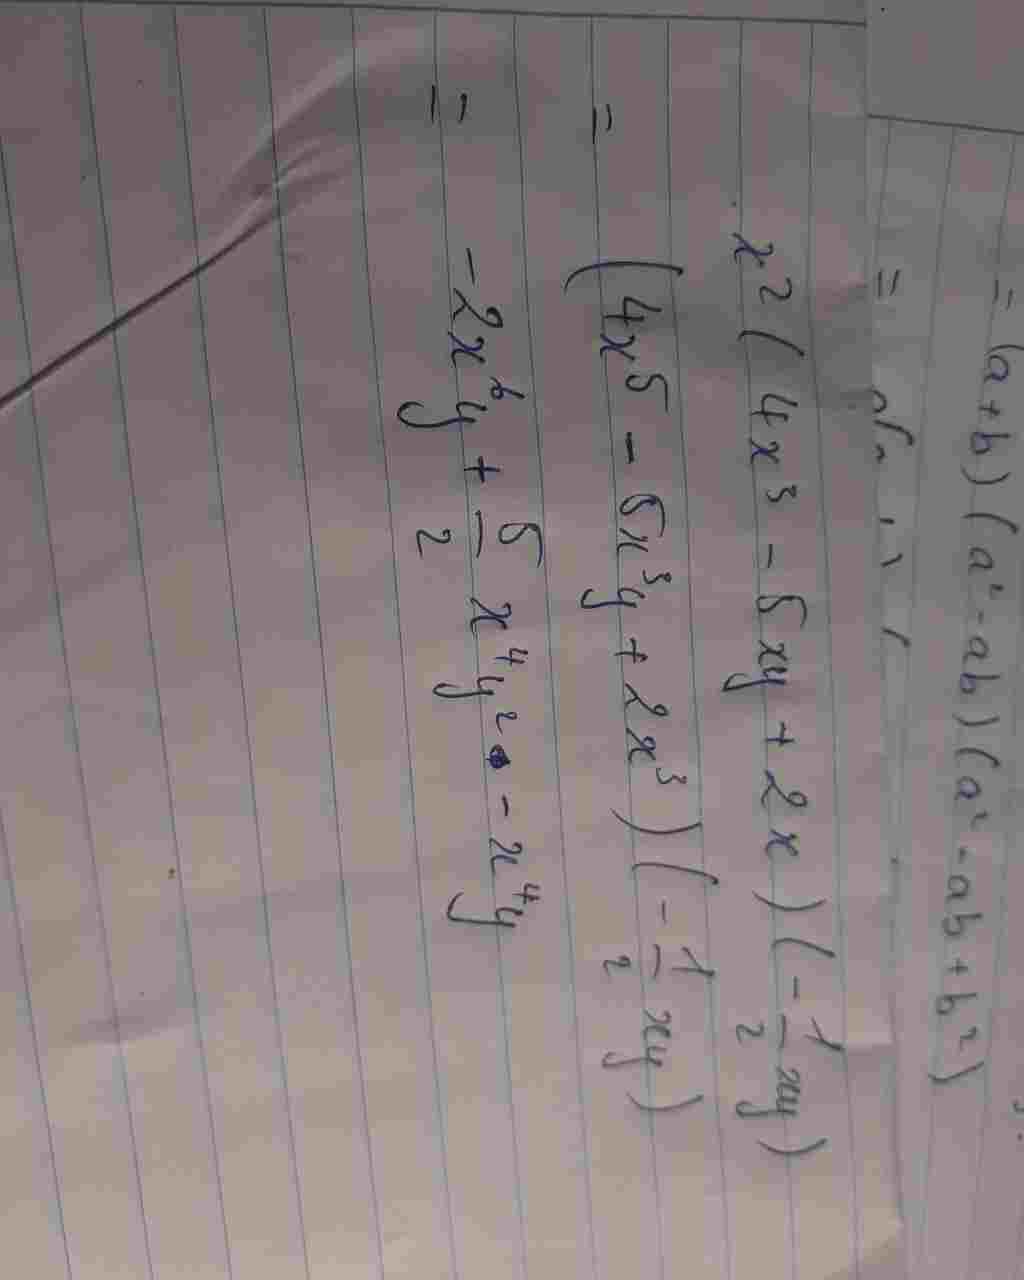 = (a+b)(a²-ab)(a²-ab+b²)
x²(4x³ - 5xy + 2x)(-1/2 xy)
= (4x⁵ - 5x³y + 2x³)(-1/2 xy)
= -2x⁶y + 5/2 x⁴y² - x⁴y